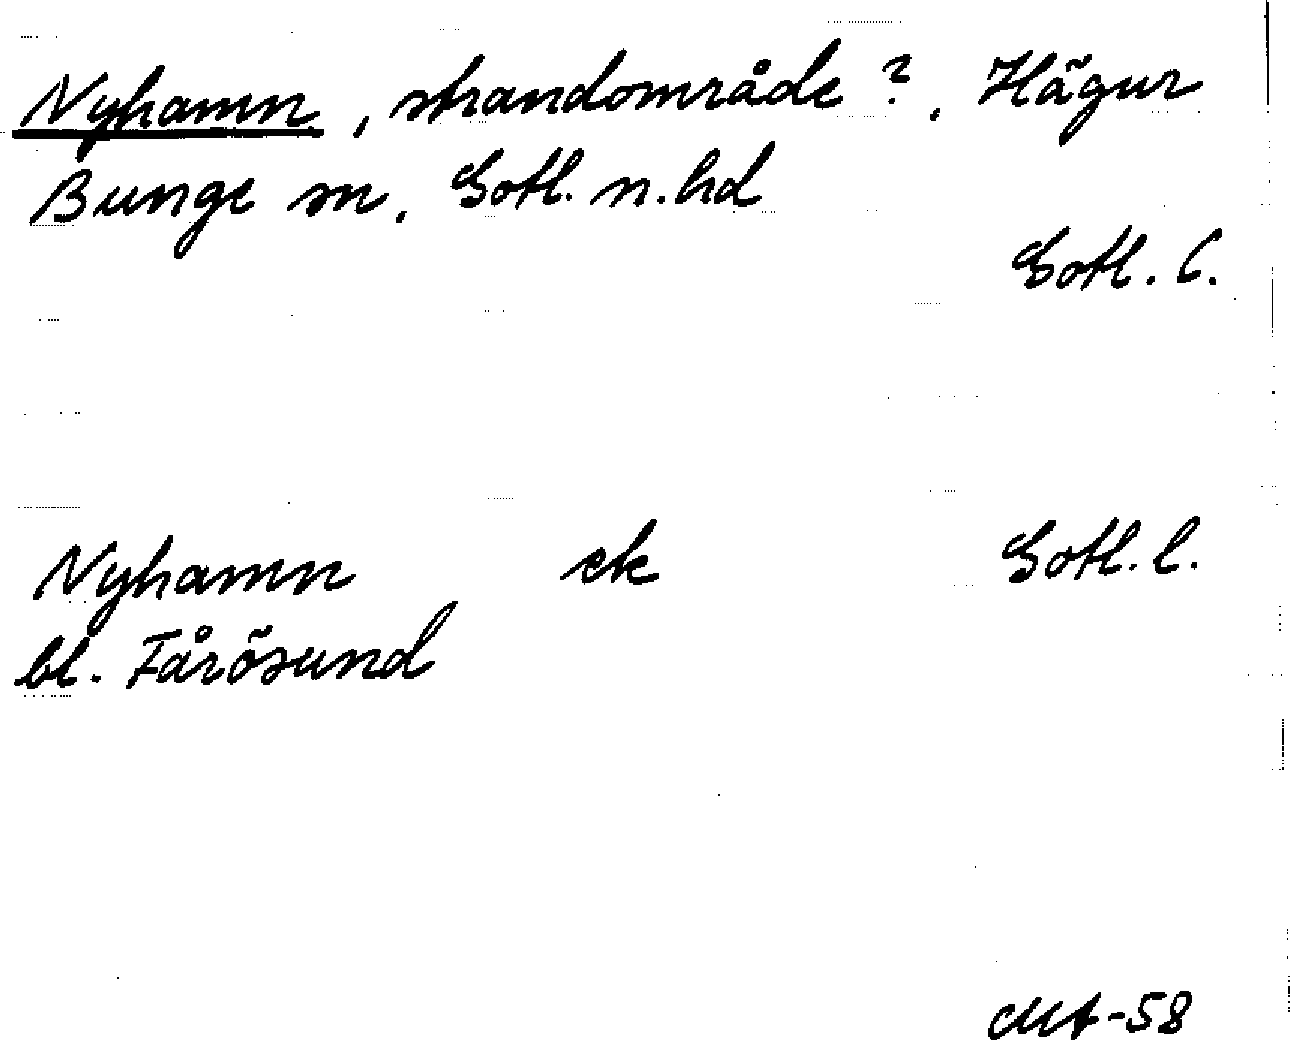 Nyhamn, strandområde?, Hägur
Bunge sn, Gotl. n. hd
Gotl. l.
Nyhamn ek Gotl. l.
bl. Fårösund